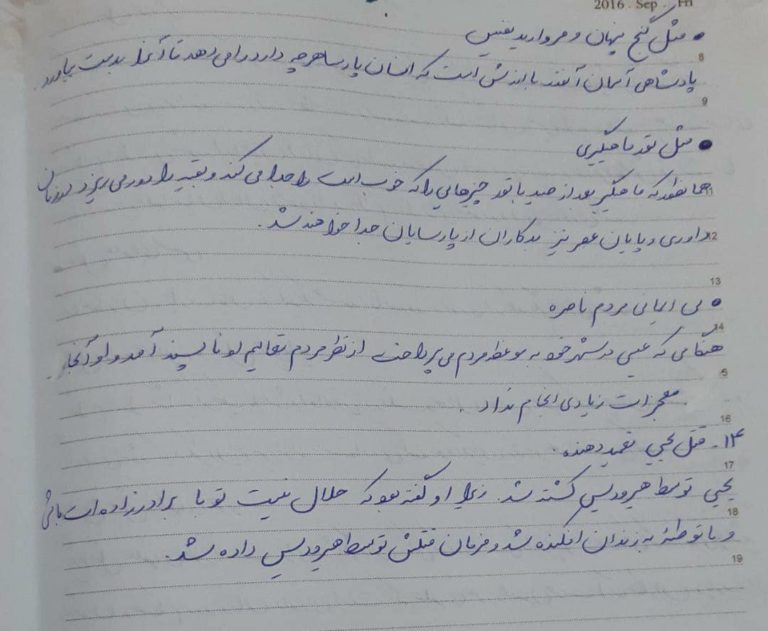 2016 . Sep . Fri
• مثل گنج پنهان و مروارید نفیس
8
پادشاهی آسمان آنقدر با ارزش است که انسان پارسا هر چه دارد را می دهد تا آنرا بدست بیاورد
9
• مثل تور ماهیگیری
11 همانطور که ماهیگیر بعد از صید با تور چیزهایی را که خوب است را جدا می کند و بقیه را دور می ریزد در زمان
12 داوری و پایان عصر نیز بدکاران از پارسایان جدا خواهند شد.
13
• بی ایمانی مردم ناصره
14
هنگامی که عیسی در شهر خود به موعظه مردم می پرداخت از نظر مردم تعالیم او ناپسند آمد و او آنجا
معجزات زیادی انجام نداد.
16
۱۴- قتل یحیی تعمید دهنده.
17
یحیی توسط هیرودیس کشته شد. زیرا او گفته بود که حلال نیست تو با برادرزاده ات باشی
18
و با توطئه به زندان افکنده شد و فرمان قتلش توسط هیرودیس داده شد.
19